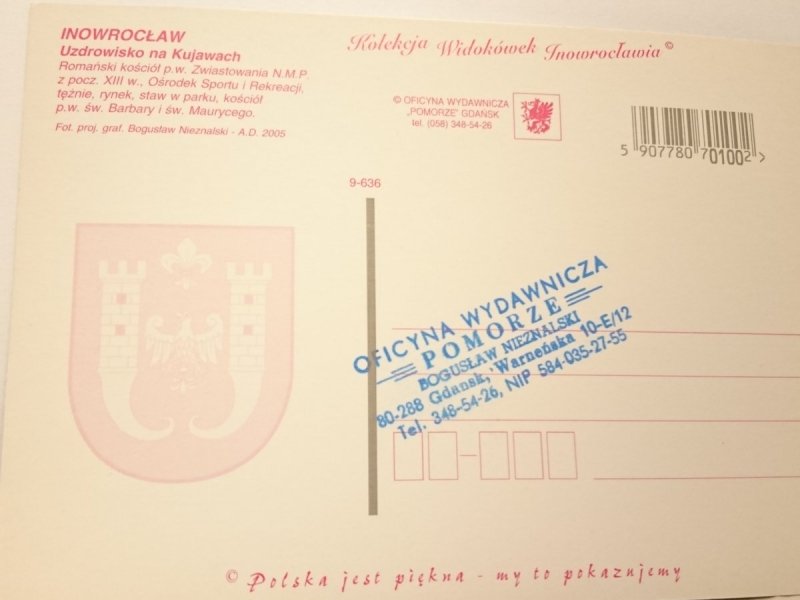 INOWROCŁAW
Uzdrowisko na Kujawach
Romański kościół p.w. Zwiastowania N.M.P.
z pocz. XIII w., Ośrodek Sportu i Rekreacji,
tężnie, rynek, staw w parku, kościół
p.w. św. Barbary i św. Maurycego.
Fot. proj. graf. Bogusław Nieznalski - A.D. 2005
Kolekcja Widokówek Inowrocławia ©
© OFICYNA WYDAWNICZA
„POMORZE" GDAŃSK
tel. (058) 348-54-26
5 907780 701002 >
9-636
OFICYNA WYDAWNICZA
POMORZE
BOGUSŁAW NIEZNALSKI
80-288 Gdansk, Warneńska 10-E/12
Tel. 348-54-26, NIP 584-035-27-55
© Polska jest piękna - my to pokazujemy